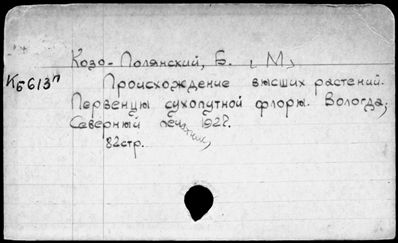 Козо-Полянский, Б. (М)
К6613п
Происхождение высших растений.
Первенцы сухопутной флоры. Вологда,
Северный печатник, 1927.
82стр.